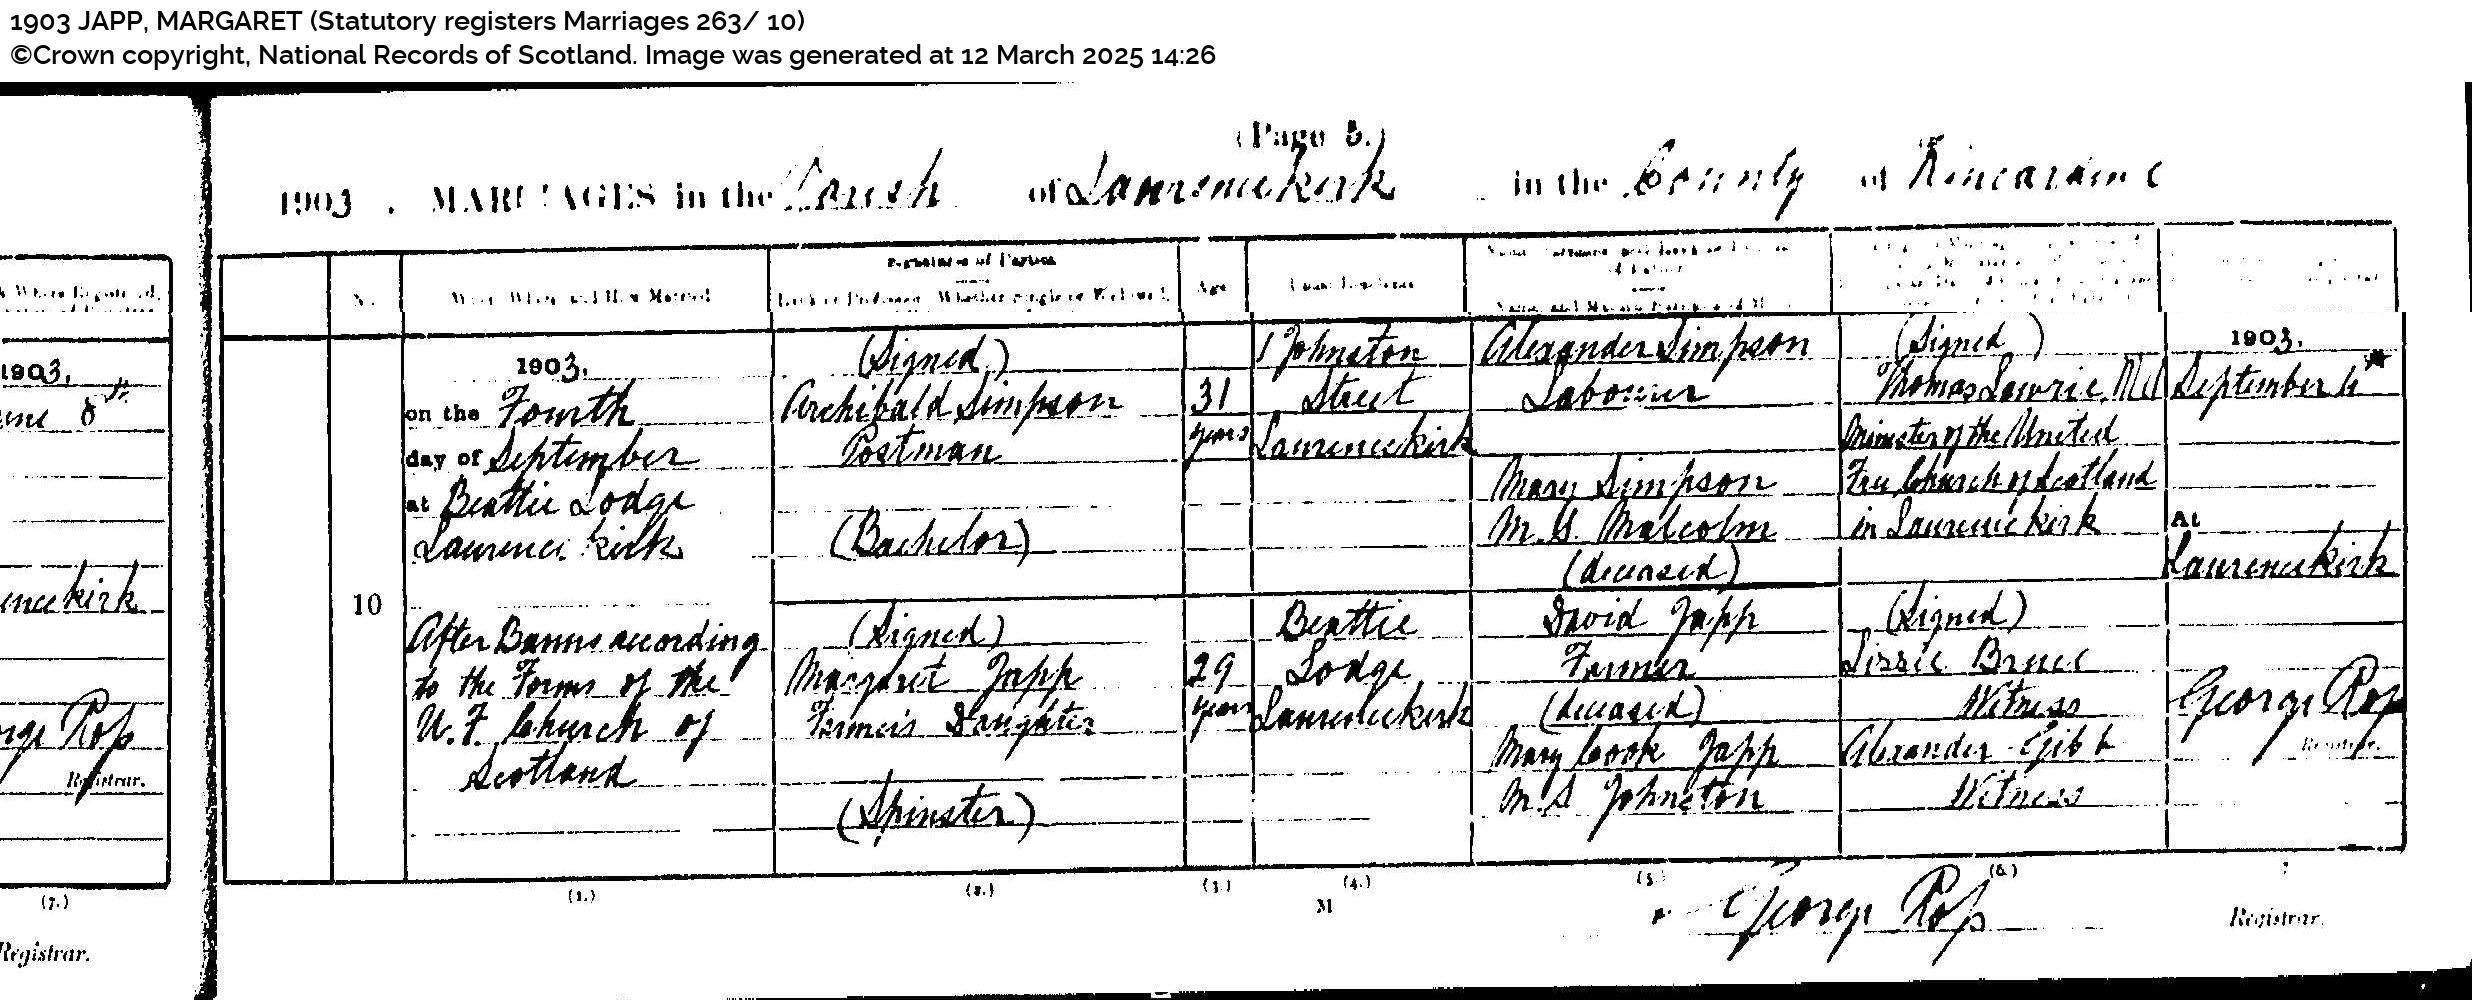 1903 JAPP, MARGARET (Statutory registers Marriages 263/ 10)
©Crown copyright, National Records of Scotland. Image was generated at 12 March 2025 14:26
(Page 5.)
1903 . MARRIAGES in the Parish of Laurencekirk in the County of Kincardine
Signatures of Parties
No. When, Where, and How Married Rank or Profession, Whether Single or Widowed Age Usual Residence
1903.
on the Fourth
day of September
at Beattie Lodge
Laurencekirk
10
After Banns according
to the Forms of the
U. F. Church of
Scotland
(Signed)
Archibald Simpson
Postman
(Bachelor)
(Signed)
Margaret Japp
Farmer's Daughter
(Spinster)
31
years
29
years
1 Johnston
Street
Laurencekirk
Beattie
Lodge
Laurencekirk
Alexander Simpson
Labourer
Mary Simpson
M.S. Malcolm
(deceased)
David Japp
Farmer
(deceased)
Mary Cook Japp
M.S. Johnston
(Signed)
Thomas Lawrie
Minister of the United
Free Church of Scotland
in Laurencekirk
(Signed)
Lizzie Bruce
Witness
Alexander Gibb
Witness
1903.
September 4th
At
Laurencekirk
George Ross
Registrar.
(1.) (2.) (3.) (4.) (5.) (6.)
M
George Ross
Registrar.
1903.
8th
encekirk
rge Ross
Registrar.
(7.)
Registrar.